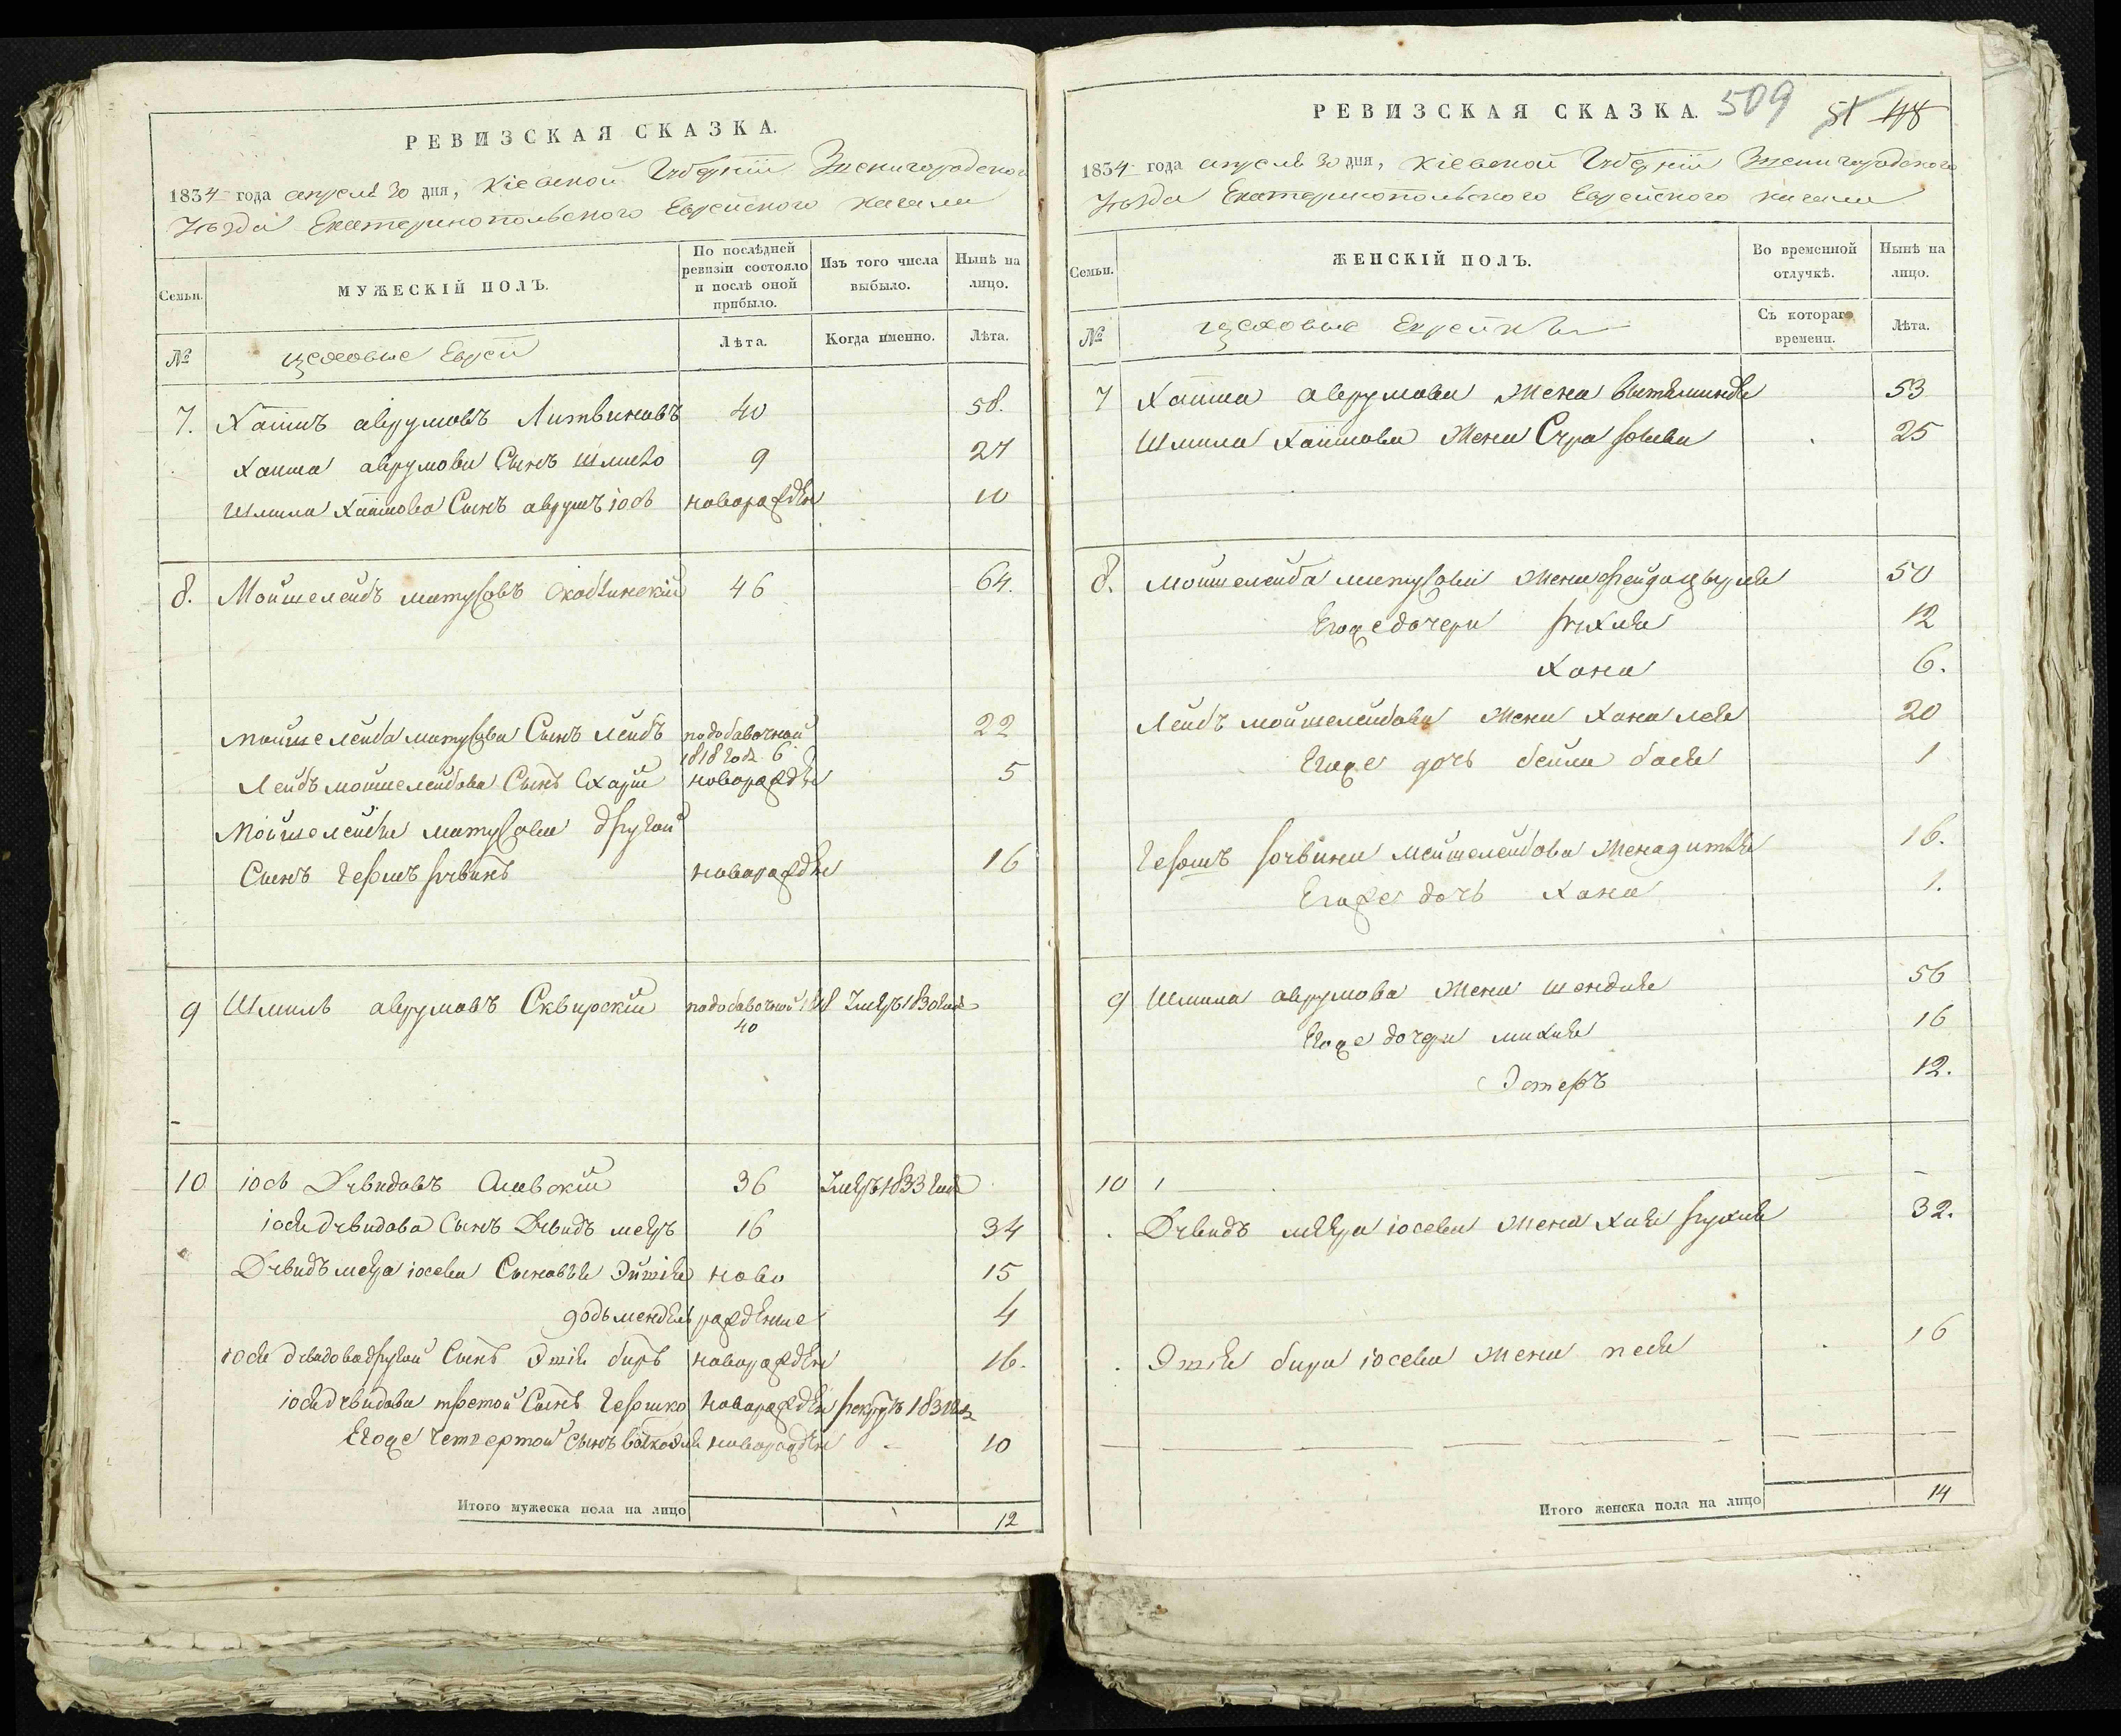 РЕВИЗСКАЯ СКАЗКА.
1834 года апреля 30 дня, Кіевской Губерніи Звенигородского
Уѣзда Екатеринопольского Еврейского кагала
Семьи.
МУЖЕСКІЙ ПОЛЪ.
По послѣдней ревизіи состояло и послѣ оной прибыло.
Изъ того числа выбыло.
Нынѣ на лицо.
№
цеховые Евреи
Лѣта.
Когда именно.
Лѣта.
7. Хаимъ аврумовъ Литвиновъ 40 58.
Хаима аврумова Сынъ Шмилко 9 27
Шмила Хаимова Сынъ аврумъ іось новорожденъ 10
8. Мойшелейбъ матусовъ 46 64.
Мойшелейба матусова Сынъ Лейбъ подобавочной 1818 года 6 22
Лейбъ мойшелейбова Сынъ новорожденъ 5
Мойшелейбы матусова другой
Сынъ Гершъ рувинъ новорожденъ 16
9 Шмиль аврумовъ Сквирскій подобавочной 1818 40 Умеръ 1830 года
10 іось Дувидовъ 36 Умеръ 1833 года
іося дувидова Сынъ Дувидъ мееръ 16 34
Дувидъ меера іосева Сыновья ново 15
мендель рожденные 4
іося дувидова другой Сынъ беръ новорожденъ 16.
іося дувидова третой Сынъ Гершко новорожденъ рекрутъ
Егоже Четвертой Сынъ новорожденъ 10
Итого мужеска пола на лицо 12
РЕВИЗСКАЯ СКАЗКА. 509
1834 года апреля 30 дня, Кіевской Губерніи Звенигородского
Уѣзда Екатеринопольского Еврейского кагала
Семьи.
ЖЕНСКІЙ ПОЛЪ.
Во временной отлучкѣ.
Нынѣ на лицо.
№
цеховые Еврейкѣ
Съ котораго времени.
Лѣта.
7 Хаима аврумова Жена 53
Шмила Хаимова Жена Сура 25
8. Мойшелейба матусова Жена 50
Егоже дочери рухля 12
Хана 6.
Лейбъ мойшелейбова Жена Хана лея 20
Егоже дочь бейла бася 1
Гершъ рувина мойшелейбова Жена 16.
Егоже дочь Хана 1.
9 Шмила аврумова Жена шендля 56
Егоже дочери михля 16
Эстеръ 12.
10
Дувидъ меера іосева Жена Хая рухля 32.
бера іосева Жена песя 16
Итого женска пола на лицо 14